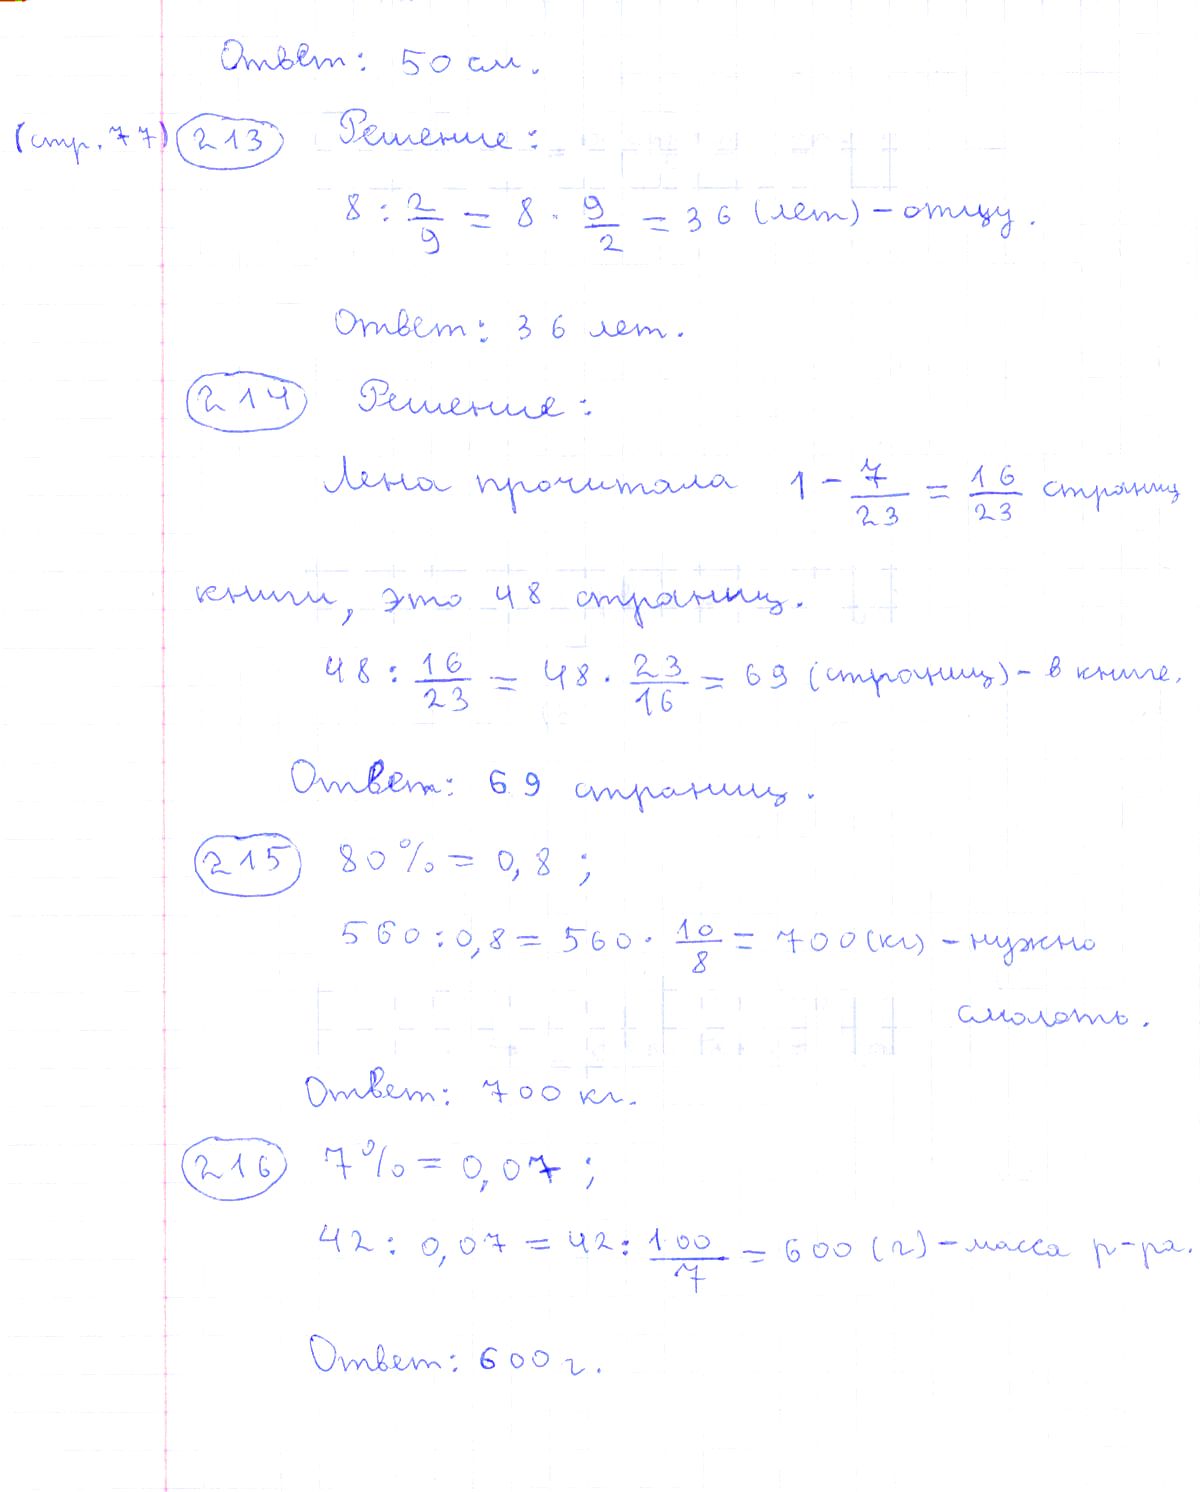 Ответ: 50 см.
(стр. 77) 213 Решение:
8 : 2/9 = 8 · 9/2 = 36 (лет) – отцу.
Ответ: 36 лет.
214 Решение:
Лена прочитала 1 – 7/23 = 16/23 страниц
книги, это 48 страниц.
48 : 16/23 = 48 · 23/16 = 69 (страниц) – в книге.
Ответ: 69 страниц.
215 80% = 0,8 ;
560 : 0,8 = 560 · 10/8 = 700 (кг) – нужно
смолоть.
Ответ: 700 кг.
216 7% = 0,07 ;
42 : 0,07 = 42 : 100/7 = 600 (г) – масса р-ра.
Ответ: 600 г.